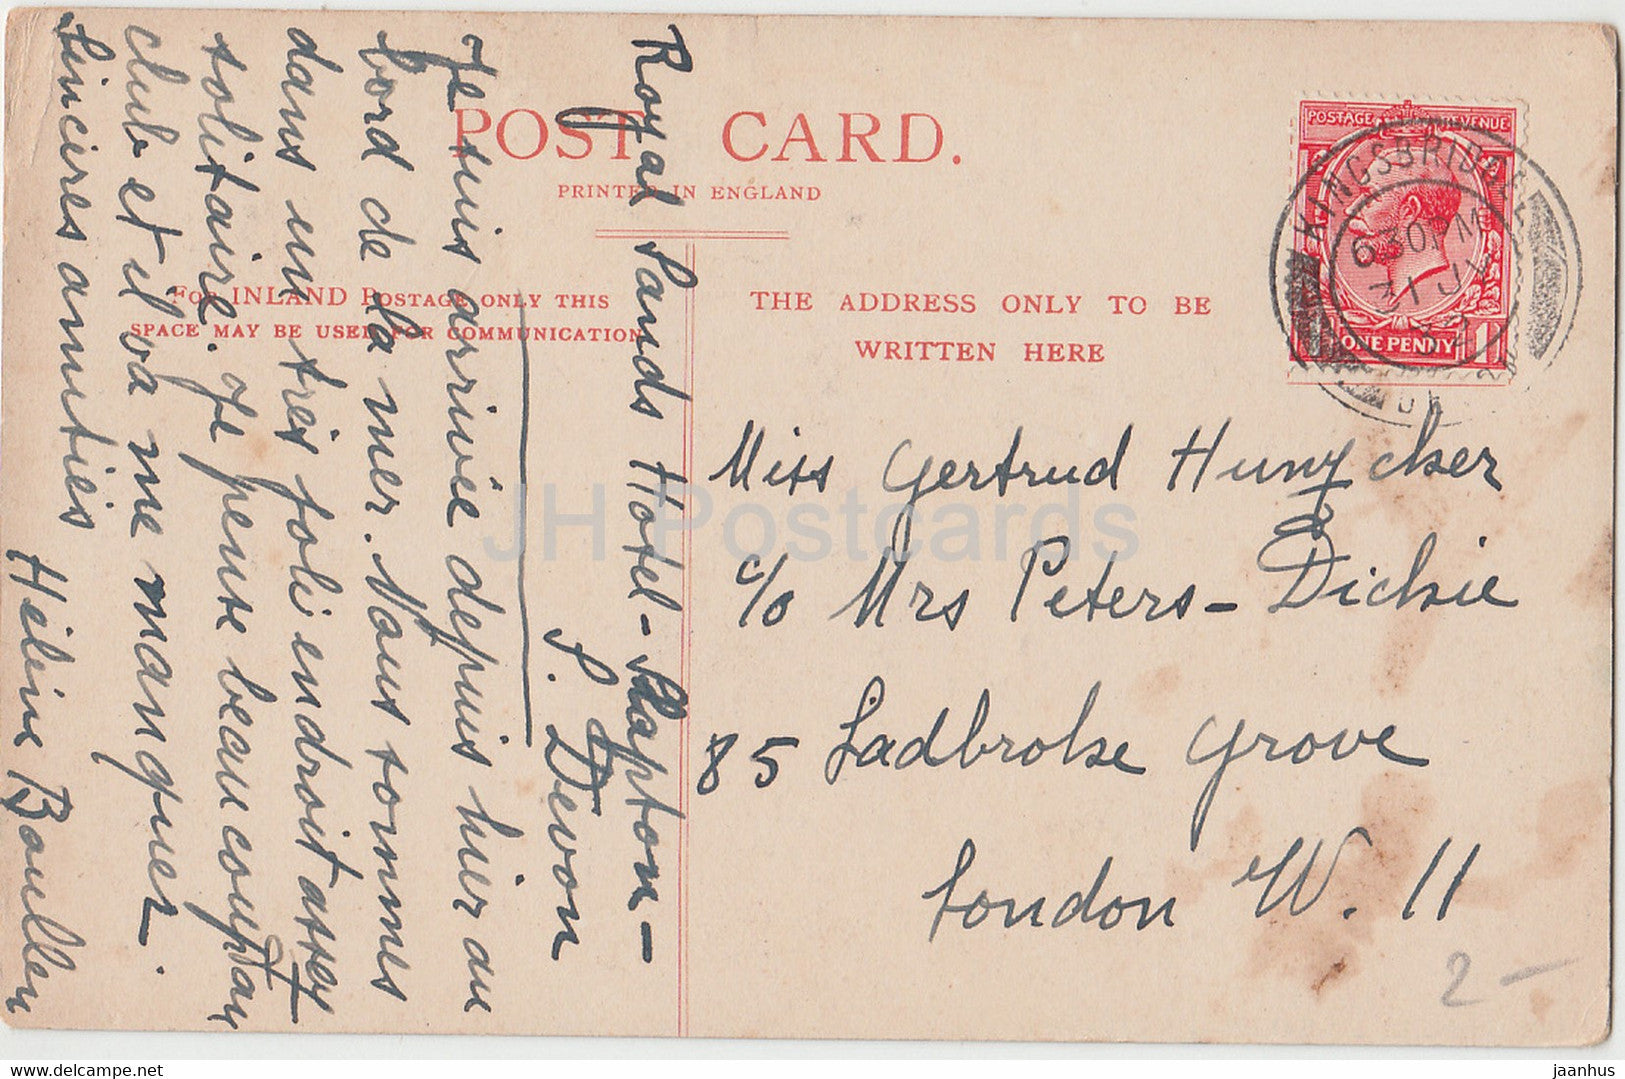 POST CARD.
PRINTED IN ENGLAND
FOR INLAND POSTAGE ONLY THIS
SPACE MAY BE USED FOR COMMUNICATION
THE ADDRESS ONLY TO BE
WRITTEN HERE
POSTAGE REVENUE
ONE PENNY
KINGSBRIDGE
6 30 PM
31 JY
32
Royal Sands Hotel - Slapton -
S. Devon
Je suis arrivée depuis hier au
bord de la mer. Nous sommes
dans un très joli endroit assez
solitaire. Je pense beaucoup au
club et il va me manquer.
Sincères amitiés
Hélène
Miss Gertrud Hunzcker
c/o Mrs Peters - Dickie
85 Ladbroke Grove
London W. 11
2 -
JH Postcards
jaanhus